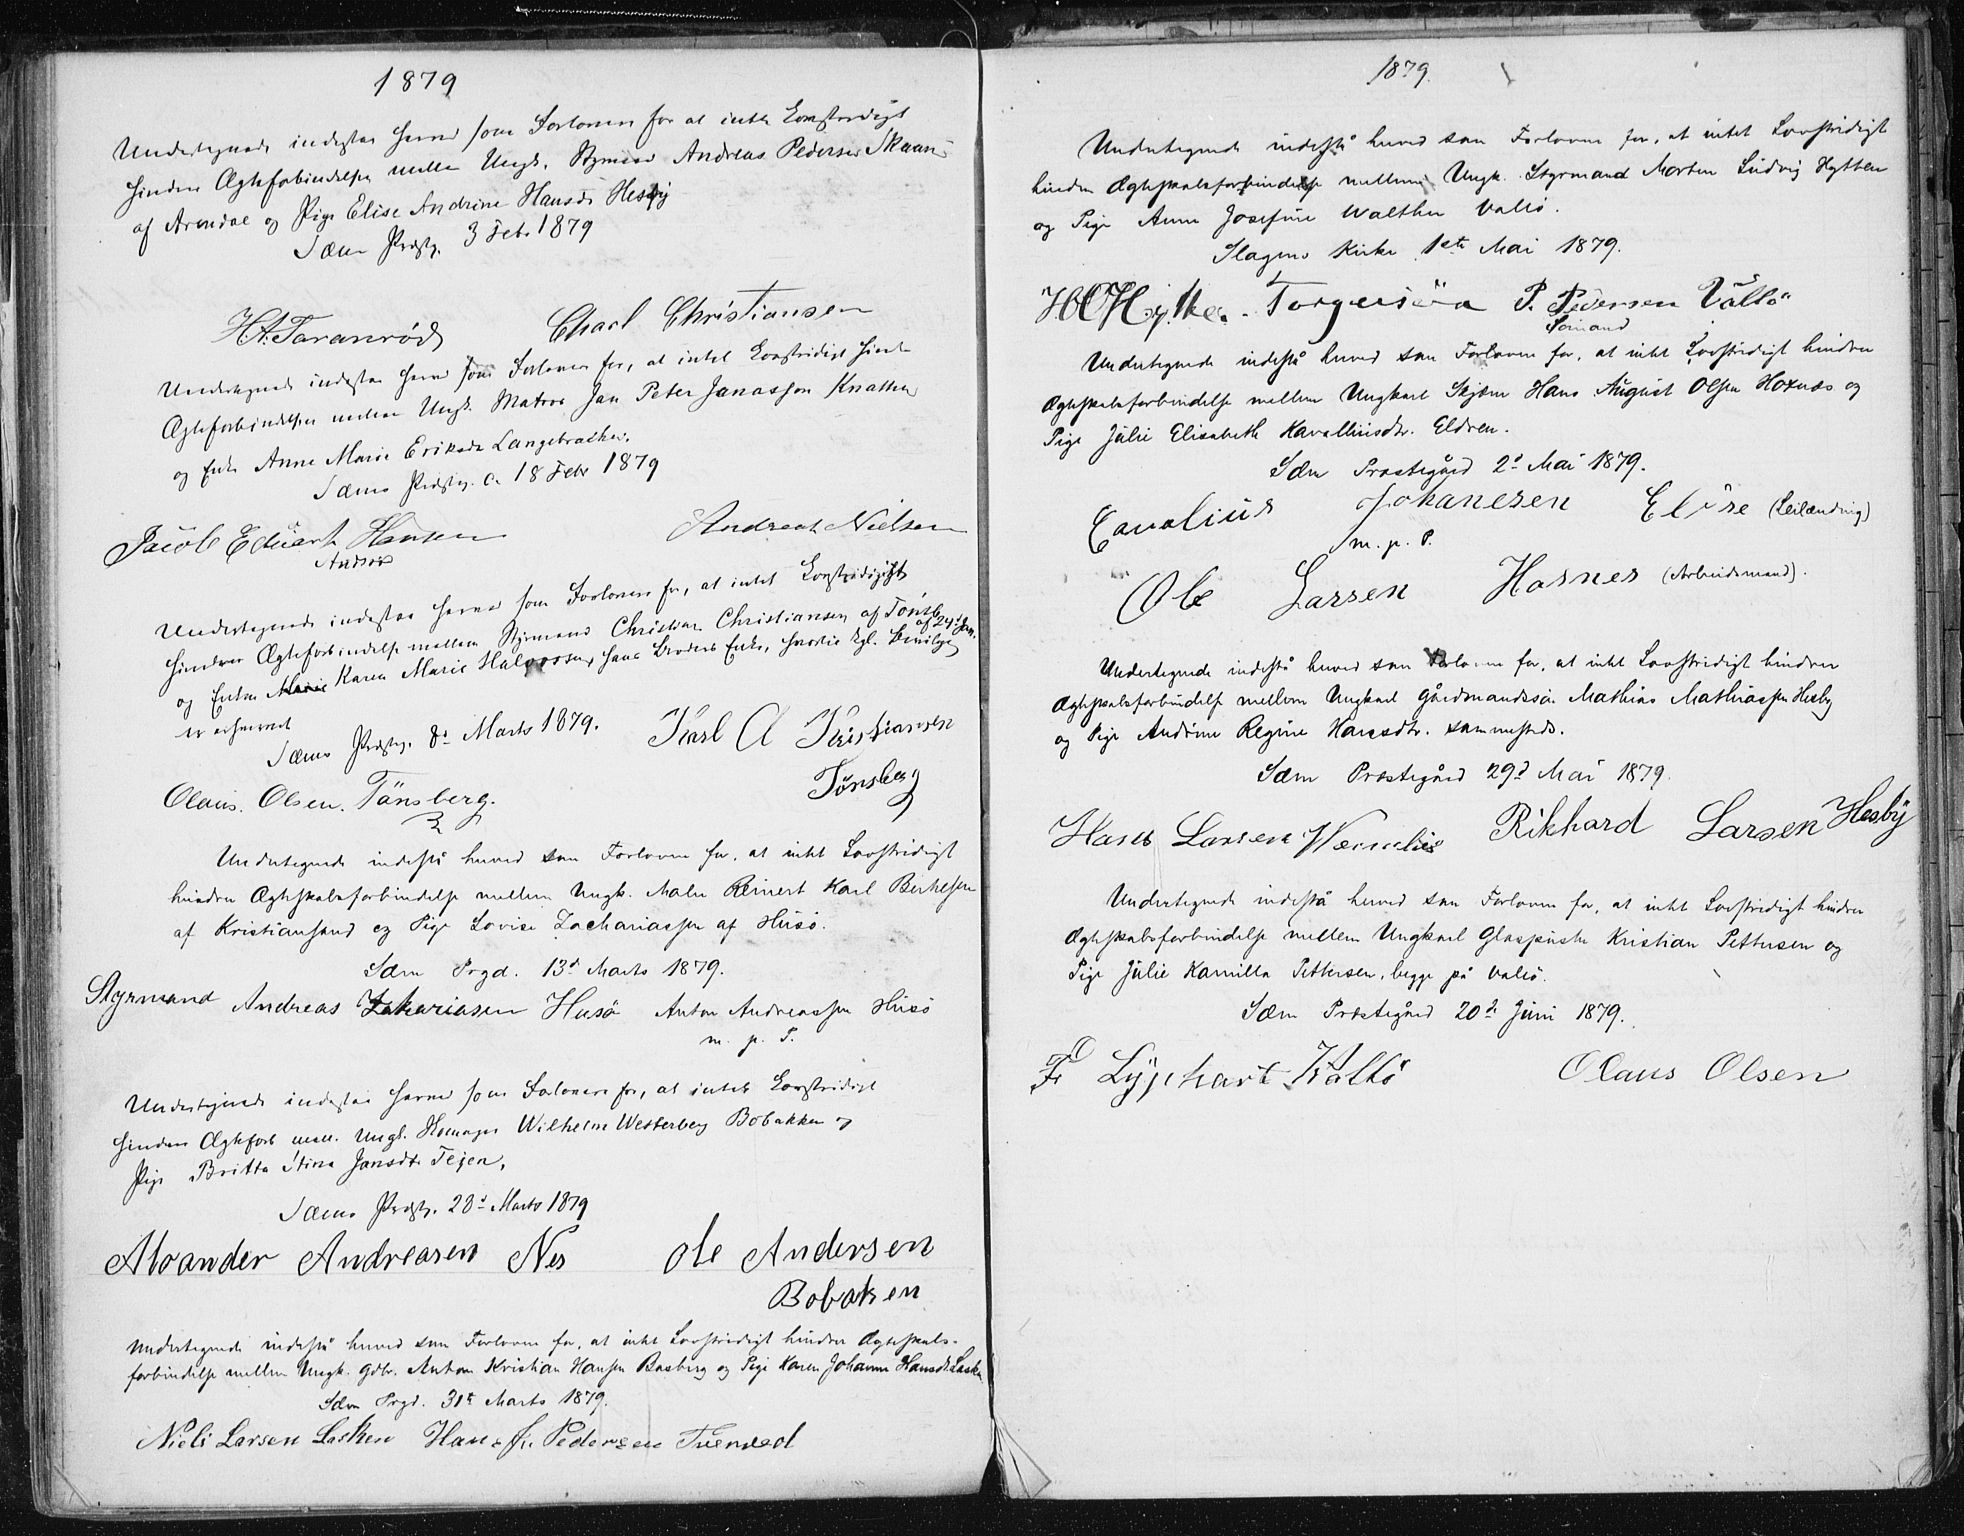 1879
Undertegnede indestaa herved som Forlovere for at intet Lovstridigt
hindrer Ægteforbindelsen mellem Ungk. Styrmand Andreas Pedersen Skaan
af Arendal og Pige Elise Andrine Hansdr Hesby
Sæms Prdstg. 3 Febr 1879
H.A. Taranrød Charl Christiansen
Undertegnede indestaa herved som Forlovere for, at intet Lovstridigt hindrer
Ægteforbindelsen mellem Ungk. Matros Jan Peter Janasson Knatten
og Enke Anne Marie Eriksdr Langebrække.
Sæms Prdstg. d. 18 Febr 1879
Jacob Eduart Hansen Andreas Nielsen
Undertegnede indestaa herved som Forlovere for, at intet Lovstridigt
hindrer Ægteforbindelse mellem Styrmand Christian Christiansen af Tønsb.
og Enken Karen Marie Halvorsen, hans Broders Enke, hvortil kgl. Bevilge af 24d Jan.
er erhvervet
Sæms Prdstg. 8d Marts 1879. Karl A Kristiansen
Tønsberg
Olaus. Olsen. Tänsberg.
Undertegnede indestå herved som Forlovere for, at intet Lovstridigt
hindrer Ægteskabsforbindelse mellem Ungk. Maler Reinert Karl Birkesen
af Kristiansand og Pige Lovise Zachariassen af Husö.
Sæm Prgd. 13d Marts 1879.
Styrmand Andreas Zakariasen Husö Anton Andreassen Husö
m. p. P.
Undertegnede indestaa herved som Forlovere for, at intet Lovstridigt
hindrer Ægteforb mell. Ungk. Wilhelm Westerberg Bobakken og
Pige Britta Stina Jansdtr Teien,
Sæms Prdstg. 28d Marts 1879
Andreasen Nes Ole Andersen
Bobaken
Undertegnede indestå herved som Forlovere for, at intet Lovstridigt hindrer Ægteskabs-
forbindelse mellem Ungk. Gdbr. Anton Kristian Hansen Basberg og Pige Karen Johanne Hansdtr Lasken
Sæm Prgd. 31te Marts 1879.
Niels Larsen Lasken Hans Pedersen Tuerved
1879.
Undertegnede indestå herved som Forlovere for, at intet Lovstridigt
hindrer Ægteskabsforbindelse mellem Ungk. Styrmand Morten Ludvig Hytten
og Pige Anne Josefine Walther Vallö.
Slagens Kirke 1ste Mai 1879.
Torgersen P. Pedersen Vallö
Sömand
Undertegnede indestå herved som Forlovere for, at intet Lovstridigt hindrer
Ægteskabsforbindelse mellem Ungkarl Skjæm Hans August Olsen Hornæs og
Pige Julie Elisabeth Kavallinisdtr. Eldren.
Sæm Præstegård 2d Mai 1879.
Cavalius Johanesen (Leilænding)
m. p. P.
Ole Larsen Hosnes (Arbeidsmand).
Undertegnede indestå herved som Forlovere for, at intet Lovstridigt hindrer
Ægteskabsforbindelse mellem Ungkarl Gårdmandssön Mathias Mathiassen Hesby
og Pige Andrine Regine Hansdtr. sammesteds.
Sæm Præstegård 29d Mai 1879.
Hans Larsen Rikhard Larsen Hesbÿ
Undertegnede indestå herved som Forlovere for, at intet Lovstridigt hindrer
Ægteskabsforbindelse mellem Ungkarl Glaspuster Kristian Pettersen og
Pige Julie Kamilla Pettersen, begge på Vallö.
Sæm Præstegård 20d Juni 1879.
Vallö Olaus Olsen